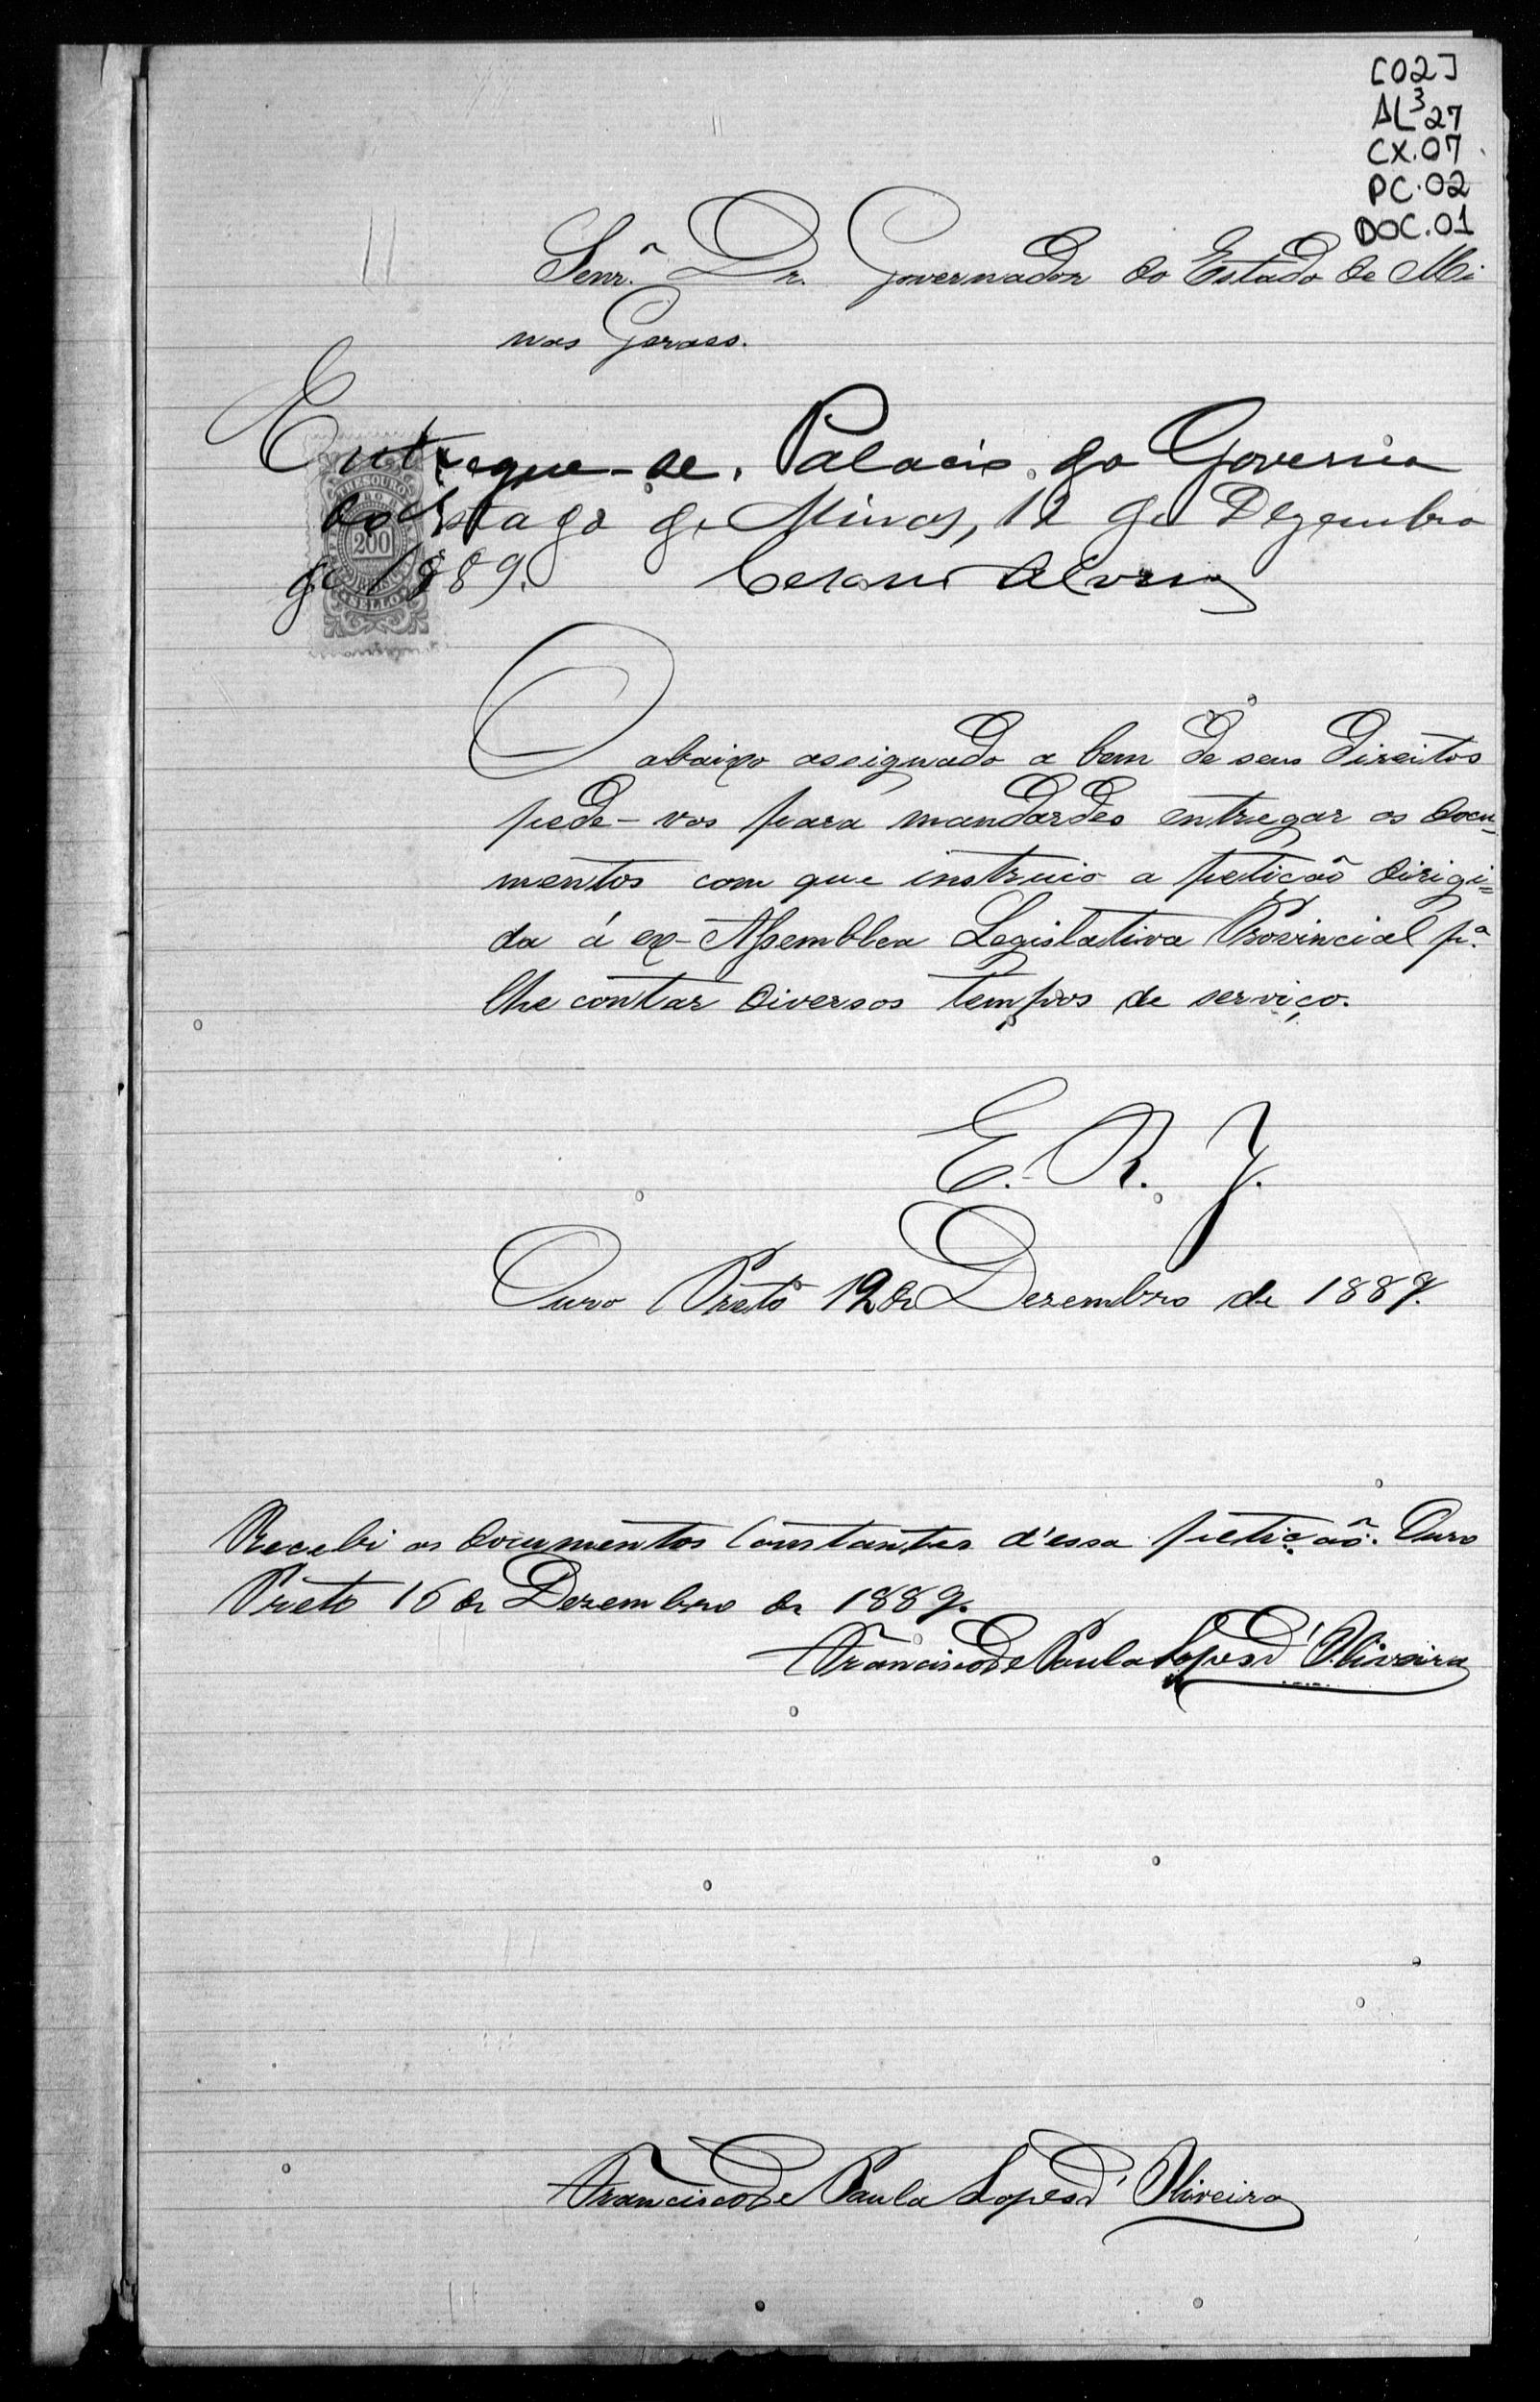 [02]
AL³27
CX.07
PC.02
DOC.01
Senr.º Dr. Governador do Estado de Mi
nas Geraes.
Entregue-se. Palacio do Governo
do Estado de Minas, 12 de Dezembro
de 1889. Cesario Alvim
THESOURO
200
SELLO
O abaixo assignado a bem de seus direitos
pede-vos para mandardes entregar os docu=
mentos com que instruio a petição dirigi=
da á ex-Assemblea Legislativa Provincial p.ª
lhe contar diversos tempos de serviço.
E. R. J.
Ouro Preto 12 de Dezembro de 1889.
Recebi os documentos constantes d'essa petição. Ouro
Preto 16 de Dezembro de 1889.
Francisco de Paula Lopes d'Oliveira
Francisco de Paula Lopes d'Oliveira